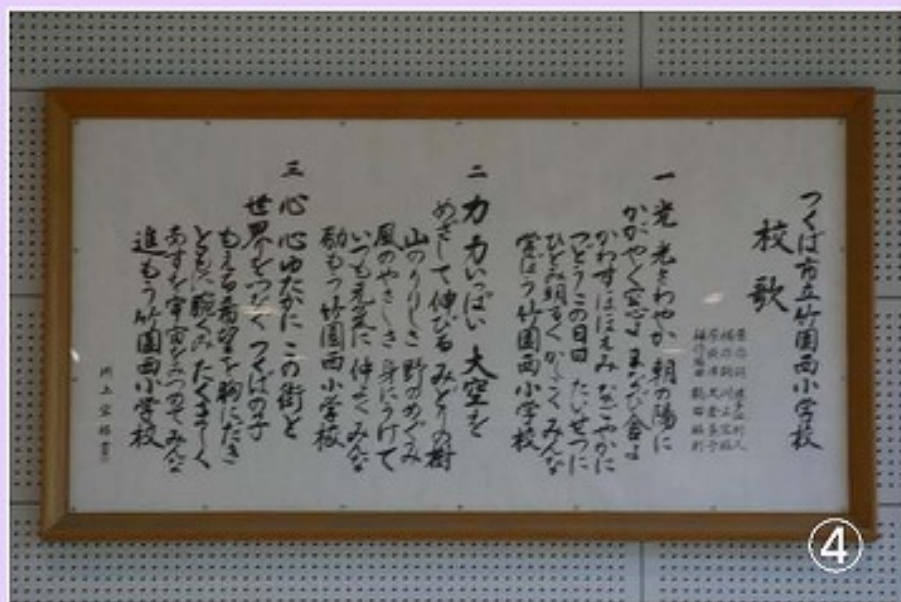 つくば市立竹園西小学校
校歌
一 光 光さわやか 朝の陽に
かがやく窓よ まなび舎よ
かわすほほえみ なごやかに
つどうこの日日 たいせつに
ひとみ明るく かしこく みんな
学ぼう 竹園西小学校
二 力 力いっぱい 大空を
めざして伸びる みどりの樹
山のりりしさ 野のめぐみ
風のやさしさ 身にうけて
いつも元気に 仲よく みんな
励もう 竹園西小学校
三 心 心ゆたかに この街と
世界をつなぐ つくばの子
もえる希望を 胸にだき
ともに腕くみ たくましく
あすを 宇宙を みつめて みんな
進もう 竹園西小学校
④